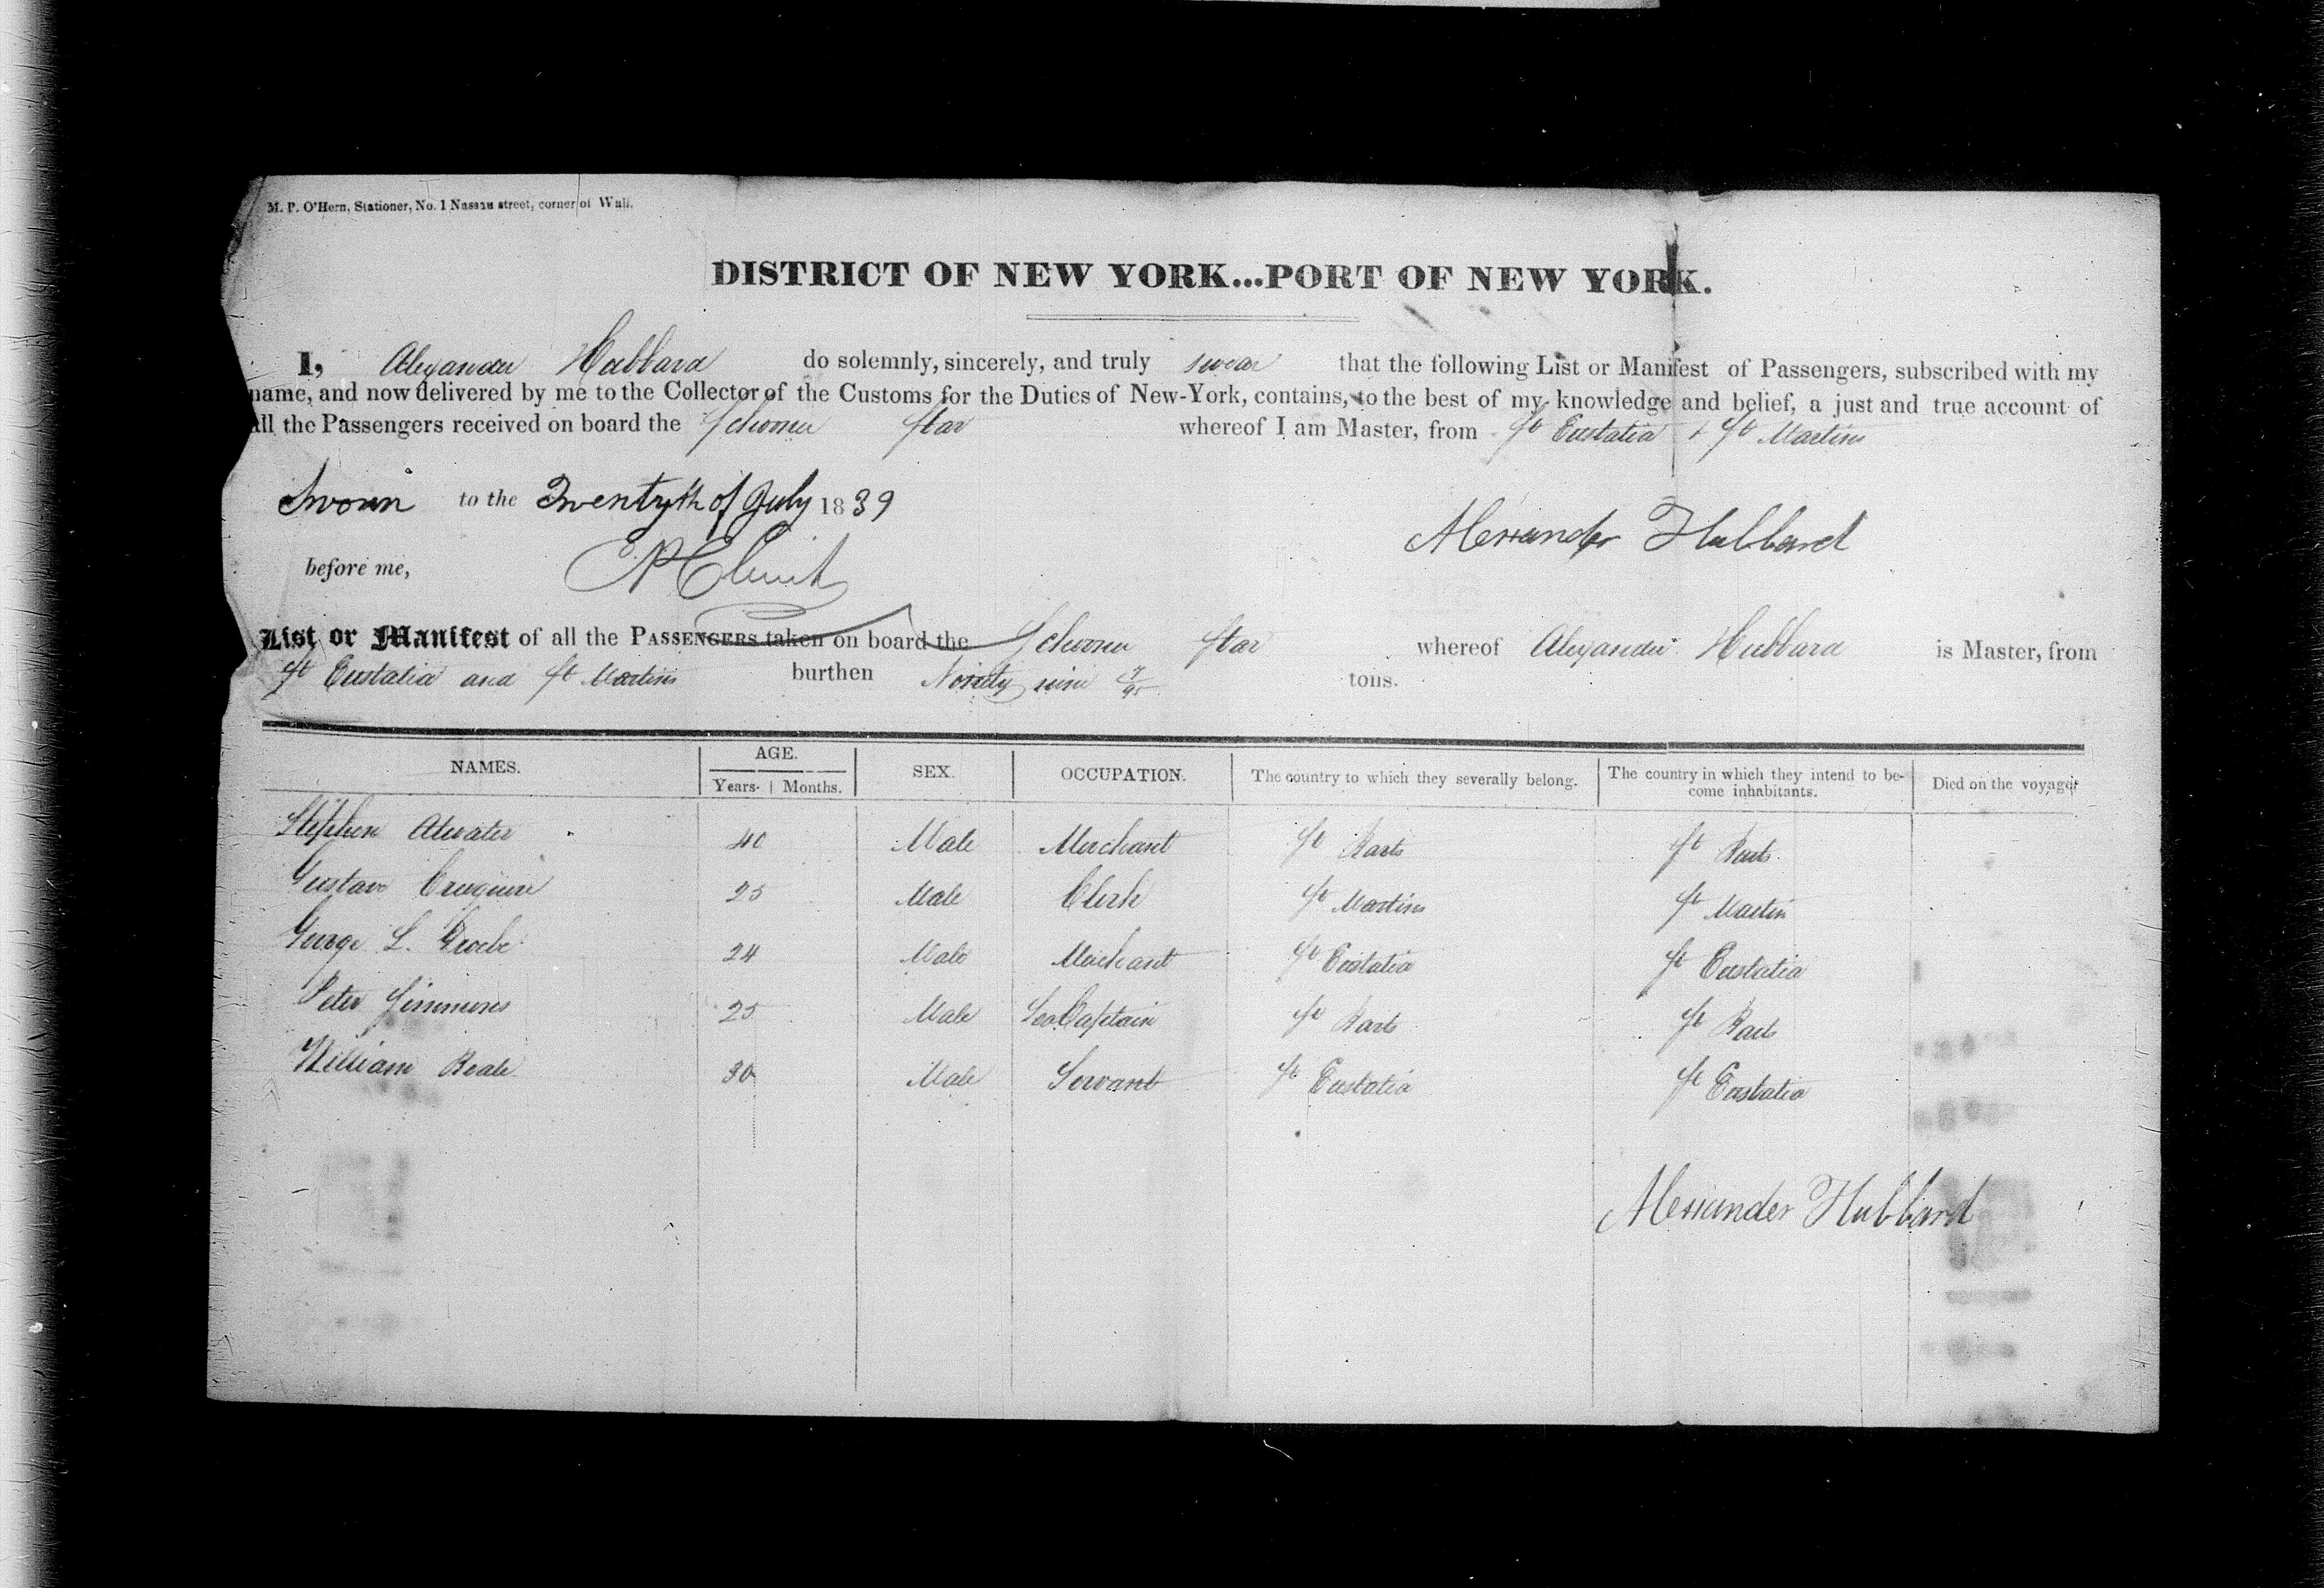 M. P. O'Hern, Stationer, No. 1 Nassau street, corner of Wall.
DISTRICT OF NEW YORK...PORT OF NEW YORK.
I, Alexander Hubbard do solemnly, sincerely, and truly swear that the following List or Manifest of Passengers, subscribed with my
name, and now delivered by me to the Collector of the Customs for the Duties of New-York, contains, to the best of my knowledge and belief, a just and true account of
all the Passengers received on board the Schooner Star whereof I am Master, from St Eustatia & St Martins
Sworn to the Twentyth of July 1839
Alexander Hubbard
before me,
List or Manifest of all the PASSENGERS taken on board the Schooner Star whereof Alexander Hubbard is Master, from
St Eustatia and St Martins burthen Ninety nine tons.
NAMES. AGE. Years. Months. SEX. OCCUPATION. The country to which they severally belong. The country in which they intend to become inhabitants. Died on the voyage
Stephen Atwater 40 Male Merchant St Barts St Barts
Gustave 25 Male Clerk St Martins St Martin
George L. 24 Male Merchant St Eustatia St Eustatia
Peter Simmons 25 Male Sea Captain St Barts St Barts
William Beale 30 Male Servant St Eustatia St Eustatia
Alexander Hubbard